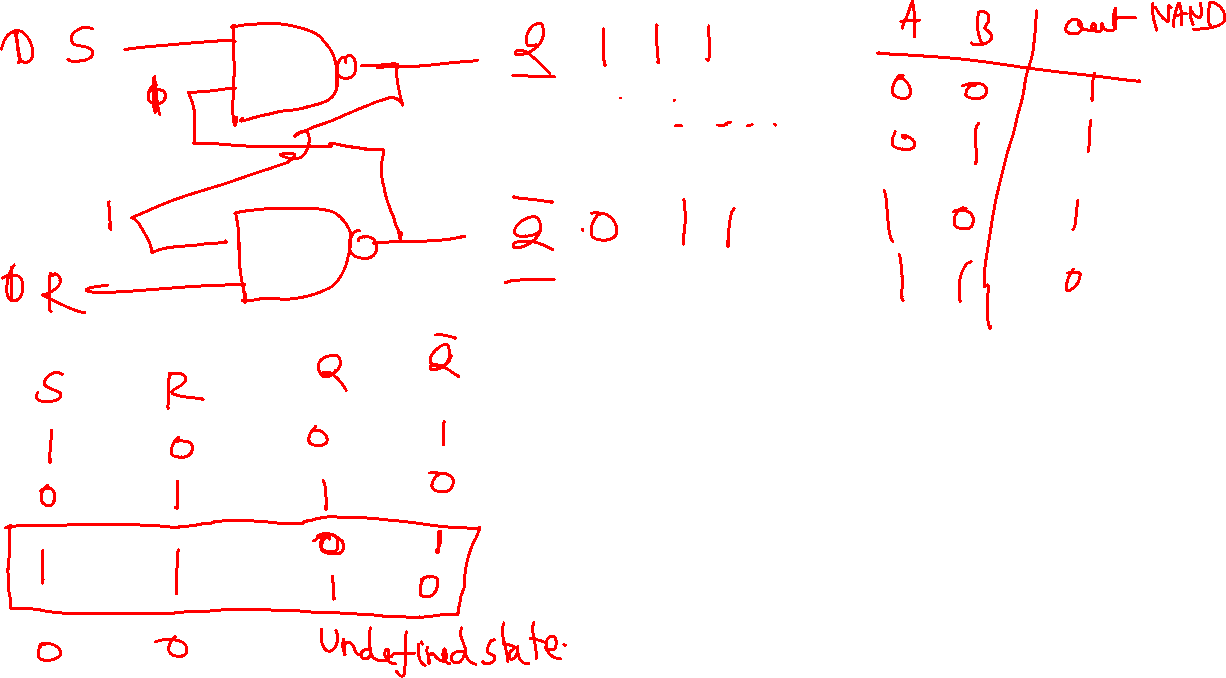 S Q 1 1 1
1
R Q̅ 0 1 1
A B out NAND
0 0 1
0 1 1
1 0 1
1 1 0
S R Q Q̅
1 0 0 1
0 1 1 0
1 1 0 1
1 0
0 0 Undefined state.